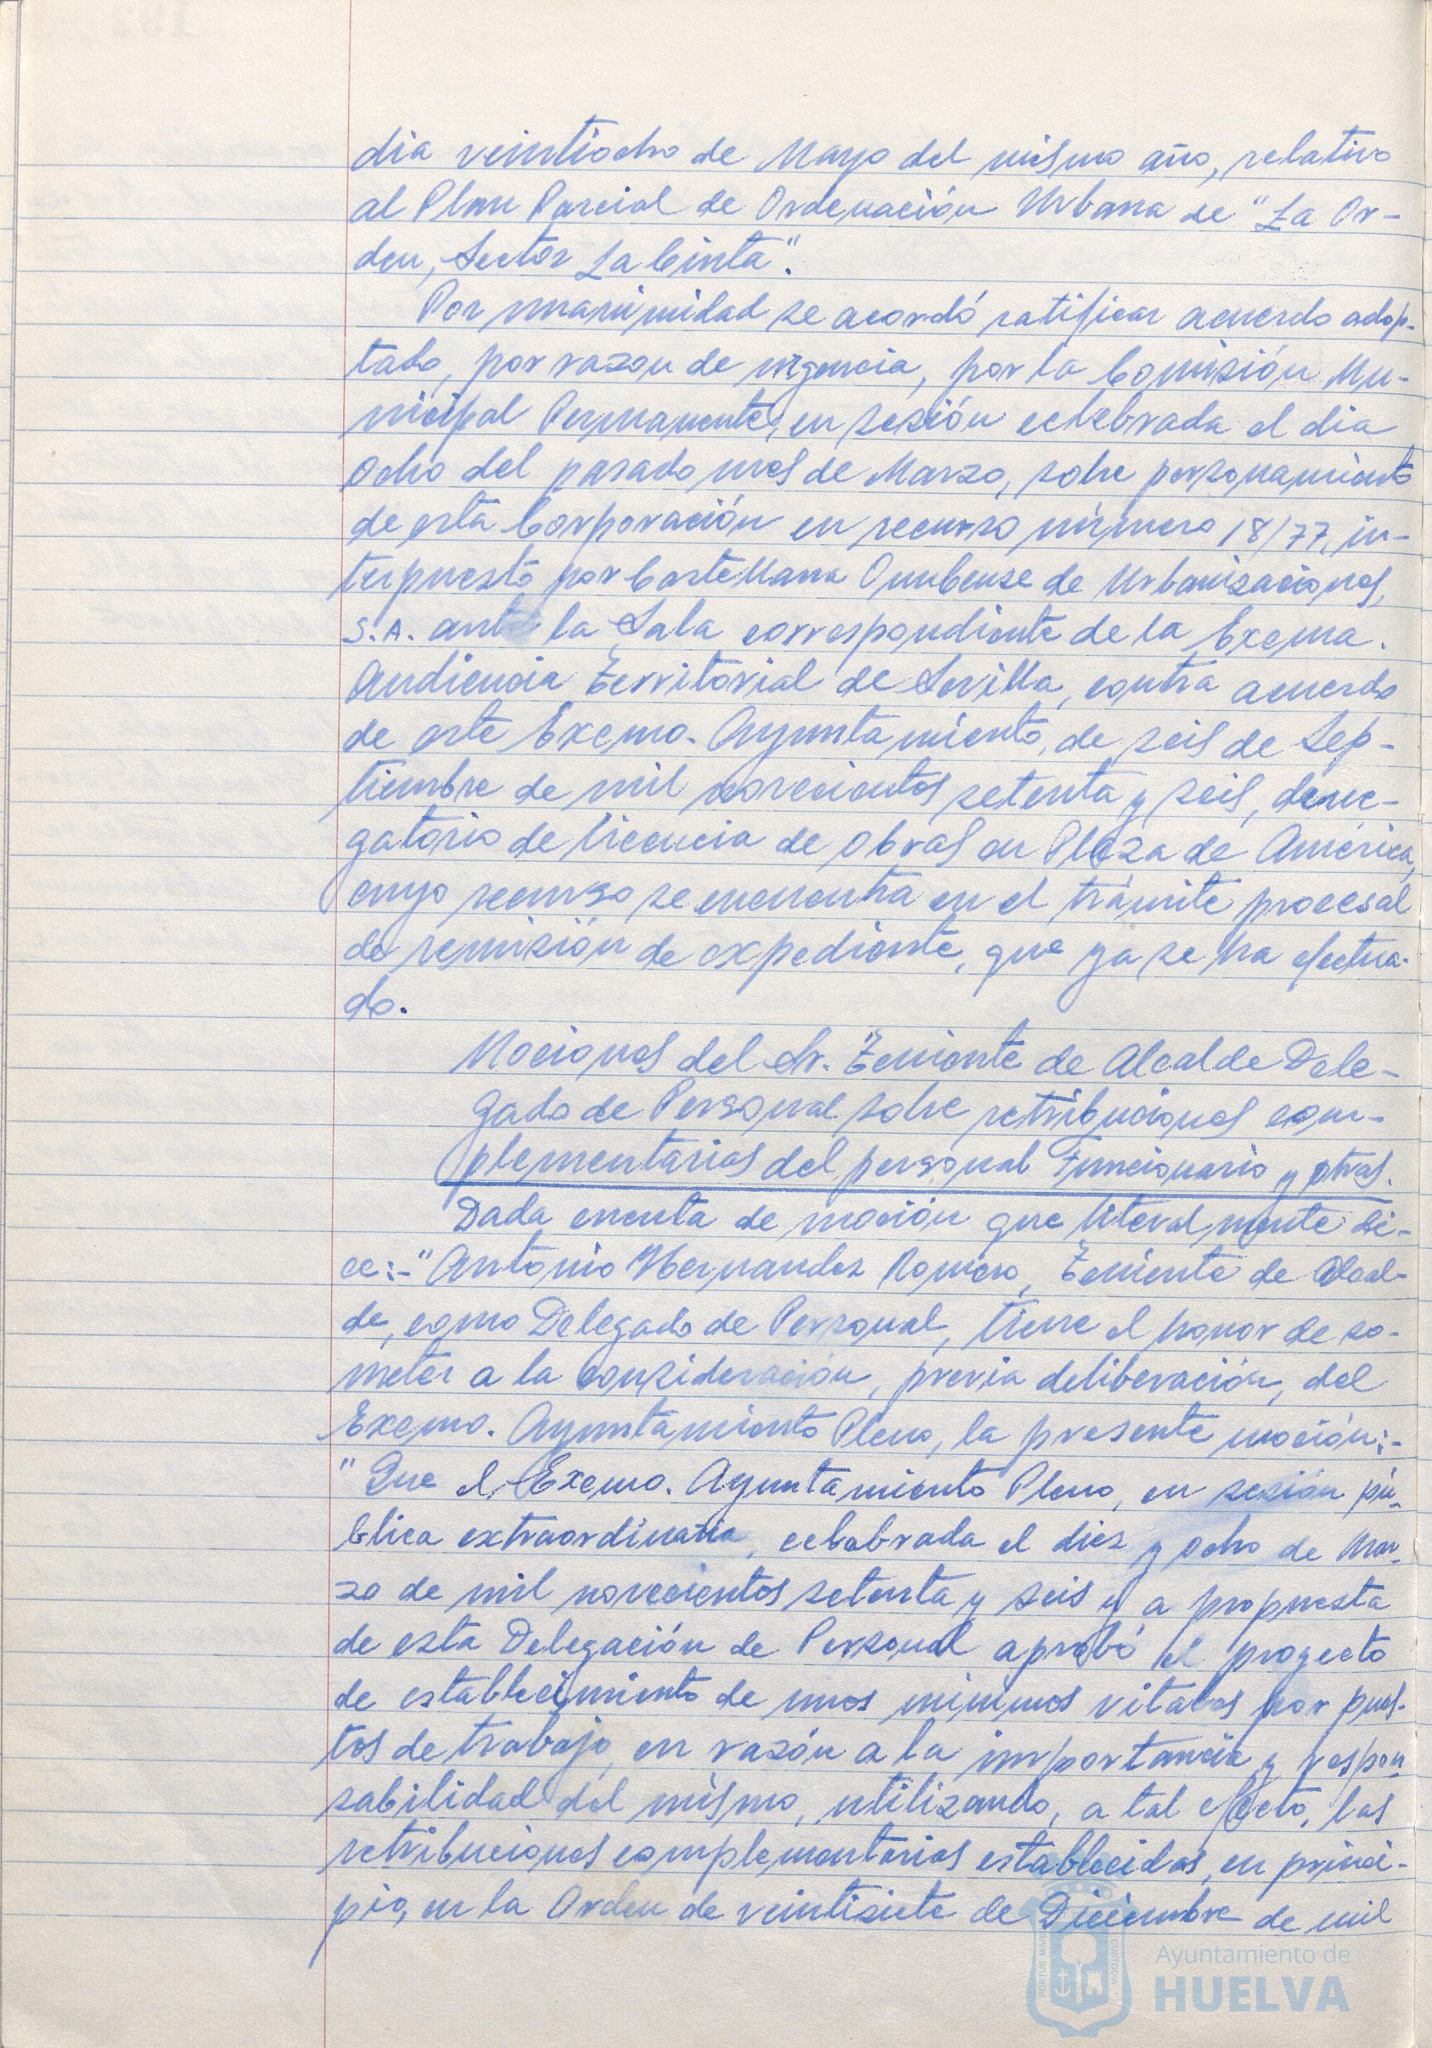 dia veintiocho de Mayo del mismo año, relativo
al Plan Parcial de Ordenación Urbana de "La Or-
den, Sector La Cinta".
Por unanimidad se acordó ratificar acuerdo adop-
tado, por razon de urgencia, por la Comisión Mu-
nicipal Permanente, en sesión celebrada el dia
ocho del pasado mes de Marzo, sobre personamiento
de esta Corporación en recurso número 18/77, in-
terpuesto por Castellana Onubense de Urbanizaciones,
S.A. ante la Sala correspondiente de la Excma.
Audiencia Territorial de Sevilla, contra acuerdo
de este Excmo. Ayuntamiento, de seis de Sep-
tiembre de mil novecientos setenta y seis, dene-
gatorio de licencia de obras en Plaza de América,
cuyo recurso se encuentra en el trámite procesal
de remisión de expediente, que ya se ha efectua-
do.
Mociones del Sr. Teniente de Alcalde Dele-
gado de Personal sobre retribuciones com-
plementarias del personal Funcionario y otras.
Dada cuenta de moción que literalmente di-
ce:-"Antonio Hernandez Romero, Teniente de Alcal-
de, como Delegado de Personal, tiene el honor de so-
meter a la consideración, previa deliberación, del
Excmo. Ayuntamiento Pleno, la presente moción:-
"Que el Excmo. Ayuntamiento Pleno, en sesión pú-
blica extraordinaria, celebrada el diez y ocho de Mar-
zo de mil novecientos setenta y seis y a propuesta
de esta Delegación de Personal aprobó el proyecto
de establecimiento de unos minimos vitales por pues-
tos de trabajo, en razón a la importancia y respon-
sabilidad del mismo, utilizando, a tal efecto, las
retribuciones complementarias establecidas, en princi-
pio, en la Orden de veintisiete de Diciembre de mil
PORTUS MARIS
CUSTODIA
Ayuntamiento de
HUELVA